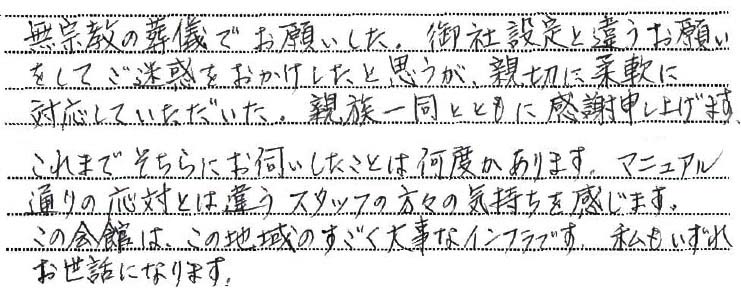 無宗教の葬儀でお願いした。御社設定と違うお願い
をしてご迷惑をおかけしたと思うが、親切に柔軟に
対応していただいた。親族一同とともに感謝申し上げます。
これまでそちらにお伺いしたことは何度かあります。マニュアル
通りの応対とは違うスタッフの方々の気持ちを感じます。
この会館は、この地域のすごく大事なインフラです。私もいずれ
お世話になります。